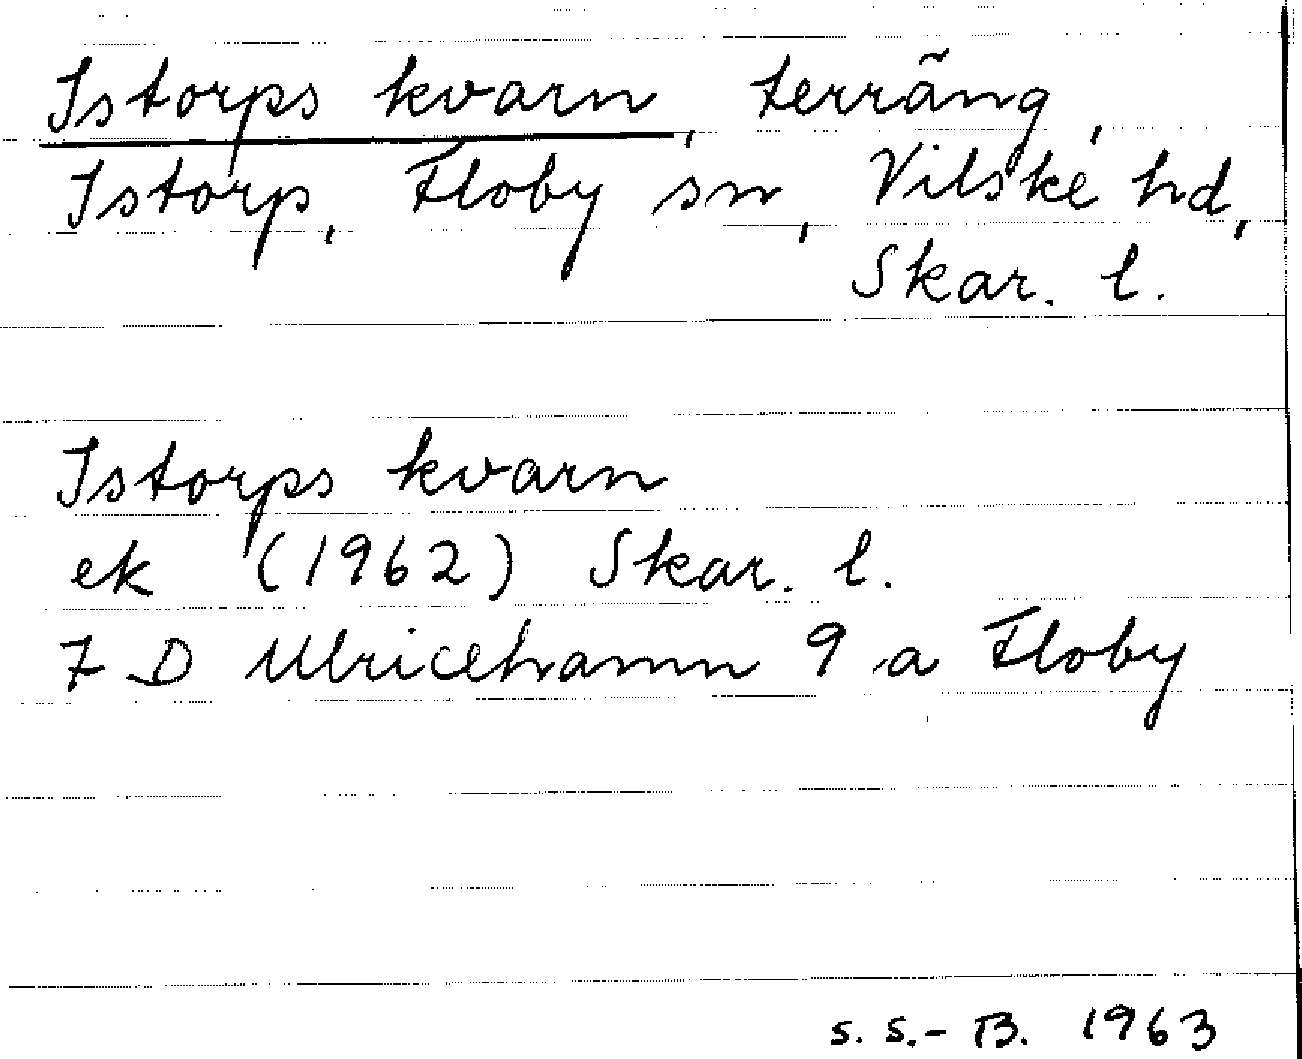 Istorps kvarn, terräng,
Istorp, Floby sn, Vilske hd,
Skar. l.
Istorps kvarn
ek (1962) Skar. l.
7 D Ulricehamn 9 a Floby
S. S.-B. 1963